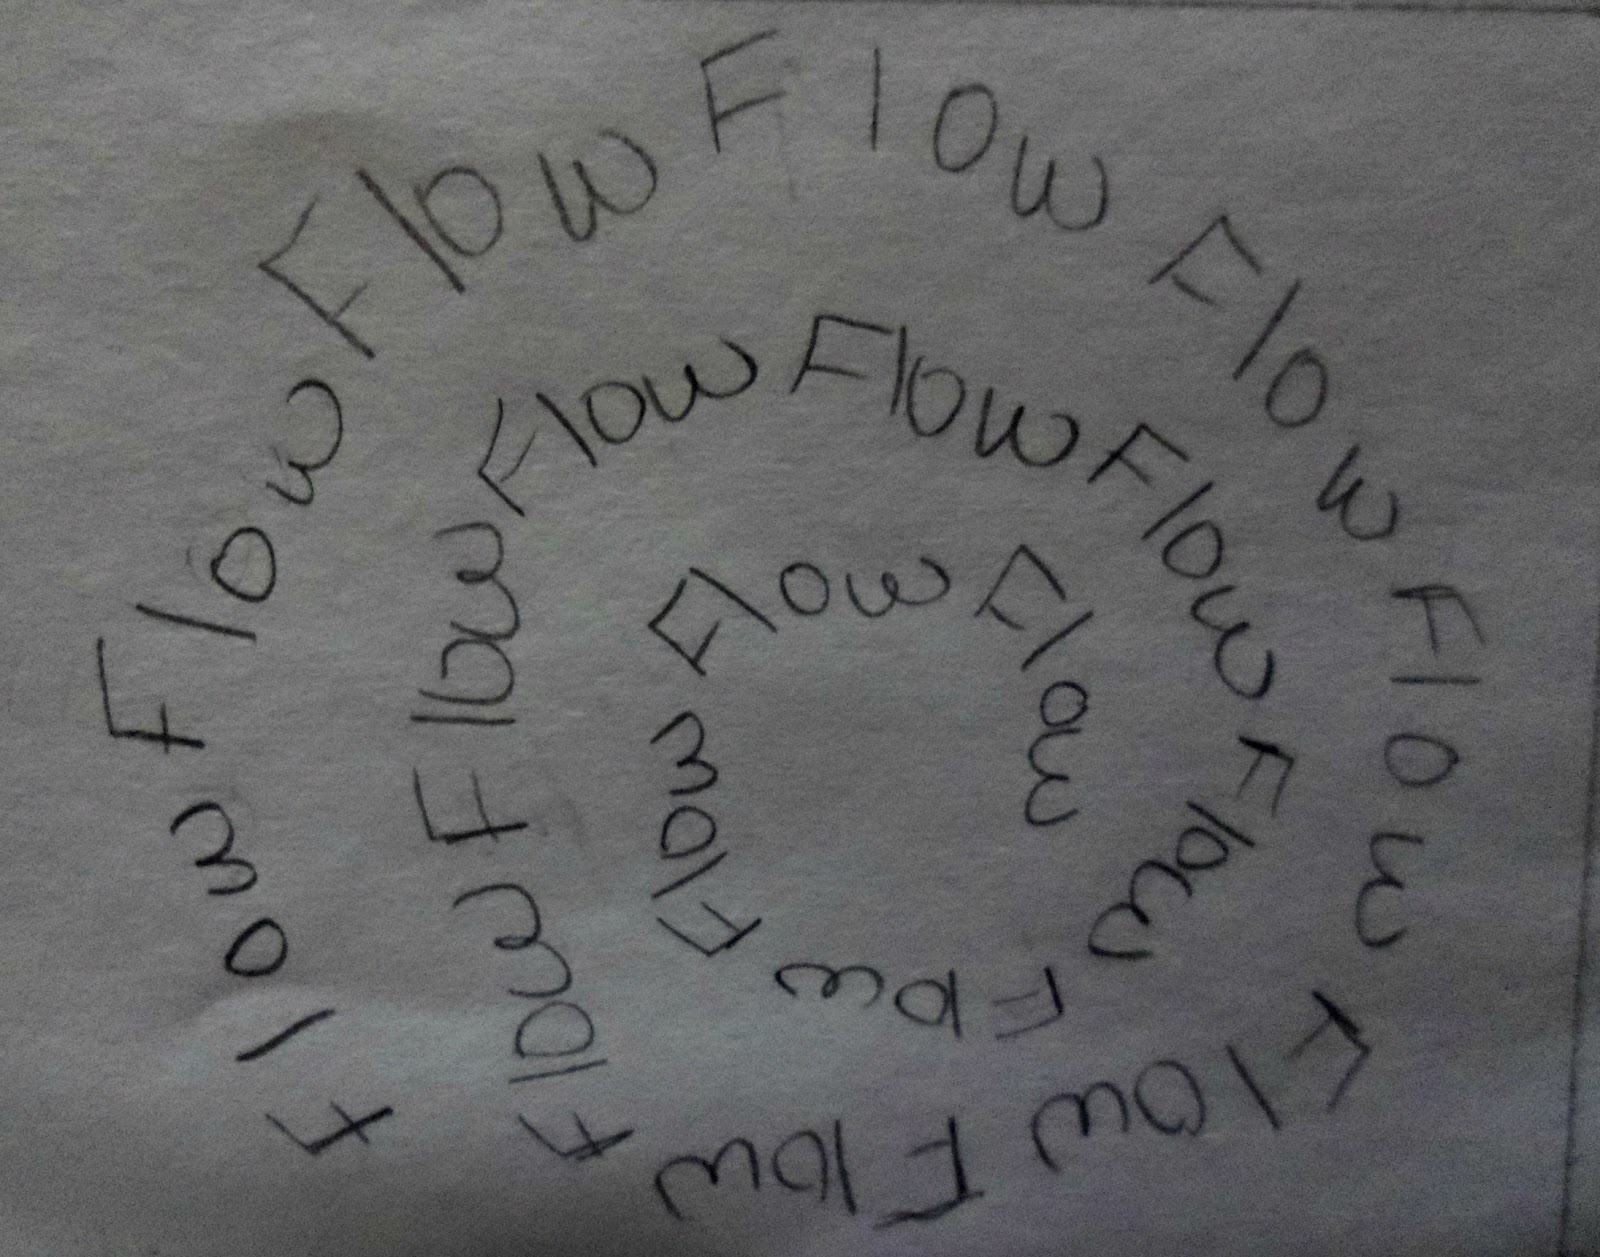 Flow Flow Flow Flow Flow Flow Flow Flow Flow Flow Flow Flow Flow Flow Flow Flow Flow Flow